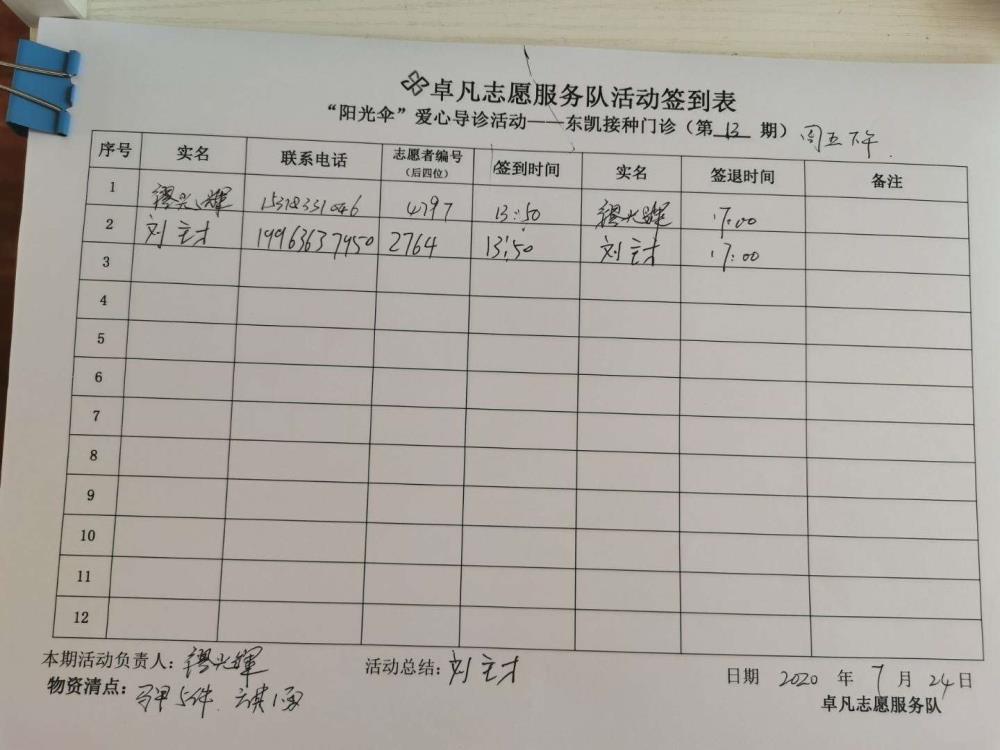 卓凡志愿服务队活动签到表
“阳光伞”爱心导诊活动——东凯接种门诊（第 13 期） 周五下午
序号 实名 联系电话 志愿者编号（后四位） 签到时间 实名 签退时间 备注
1 缪光辉 15318331046 4797 13:50 缪光辉 17:00
2 刘主才 19963637950 2764 13:50 刘主才 17:00
3
4
5
6
7
8
9
10
11
12
本期活动负责人：缪光辉 活动总结：刘主才 日期 2020 年 7 月 24 日
物资清点：马甲5件 卓凡志愿服务队